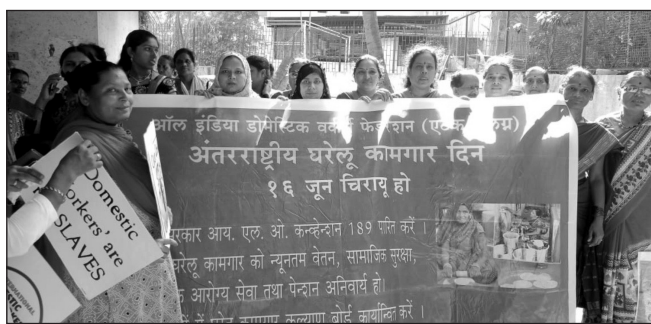 ऑल इंडिया डोमेस्टिक वर्कर्स फेडरेशन
अंतरराष्ट्रीय घरेलू कामगार दिन
१६ जून चिरायू हो
सरकार आय. एल. ओ. कन्व्हेन्शन 189 पारित करें ।
घरेलू कामगार को न्यूनतम वेतन, सामाजिक सुरक्षा,
आरोग्य सेवा तथा पेन्शन अनिवार्य हो।
कल्याण बोर्ड कार्यान्वित करें ।
Domestic
Workers' are
SLAVES